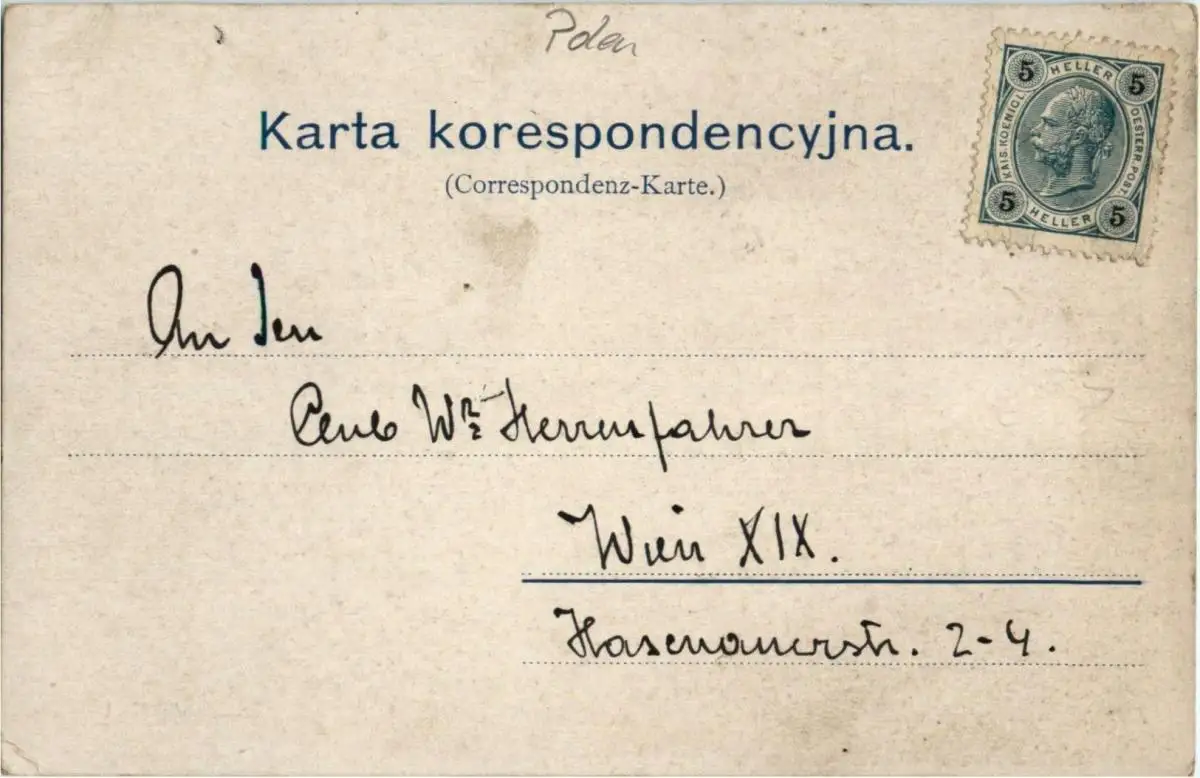 Polen
Karta korespondencyjna.
(Correspondenz-Karte.)
5 HELLER 5
KAIS. KOENIGL. OESTERR. POST.
5 HELLER 5
An den
Club Wr Herrenfahrer
Wien XIX.
Hasenauerstr. 2-4.